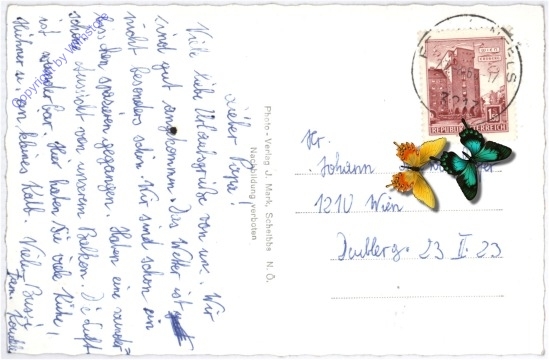 Lieber Papa!
Viele liebe Urlaubsgrüße von uns. Wir
sind gut angekommen. Das Wetter ist
nicht besonders schön. Wir sind schon ein
bis chen spazieren gegangen. Haben eine wunder-
schöne Aussicht von unserem Balkon. Die Luft
ist wunderbar. Hier haben Sie viele Kühe,
Hühner u. ein kleines Kalb. Viele Bussi
Fam.
Photo-Verlag J. Mark, Scheibbs N. Ö.
Nachbildung verboten
WIEN
ERDBERG
1.50
REPUBLIK ÖSTERREICH
WELS
Hr.
Johann
1210 Wien
23 II. 23
Copyright by